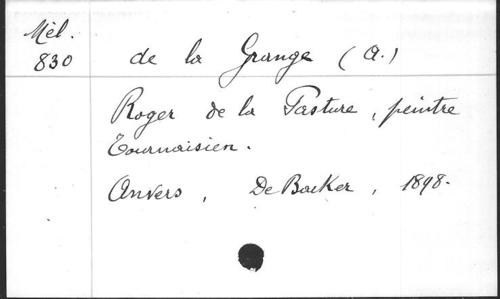 Mél.
830
de la Grange (A.)
Roger de la Pasture, peintre
Tournaisien.
Anvers, De Backer, 1898.